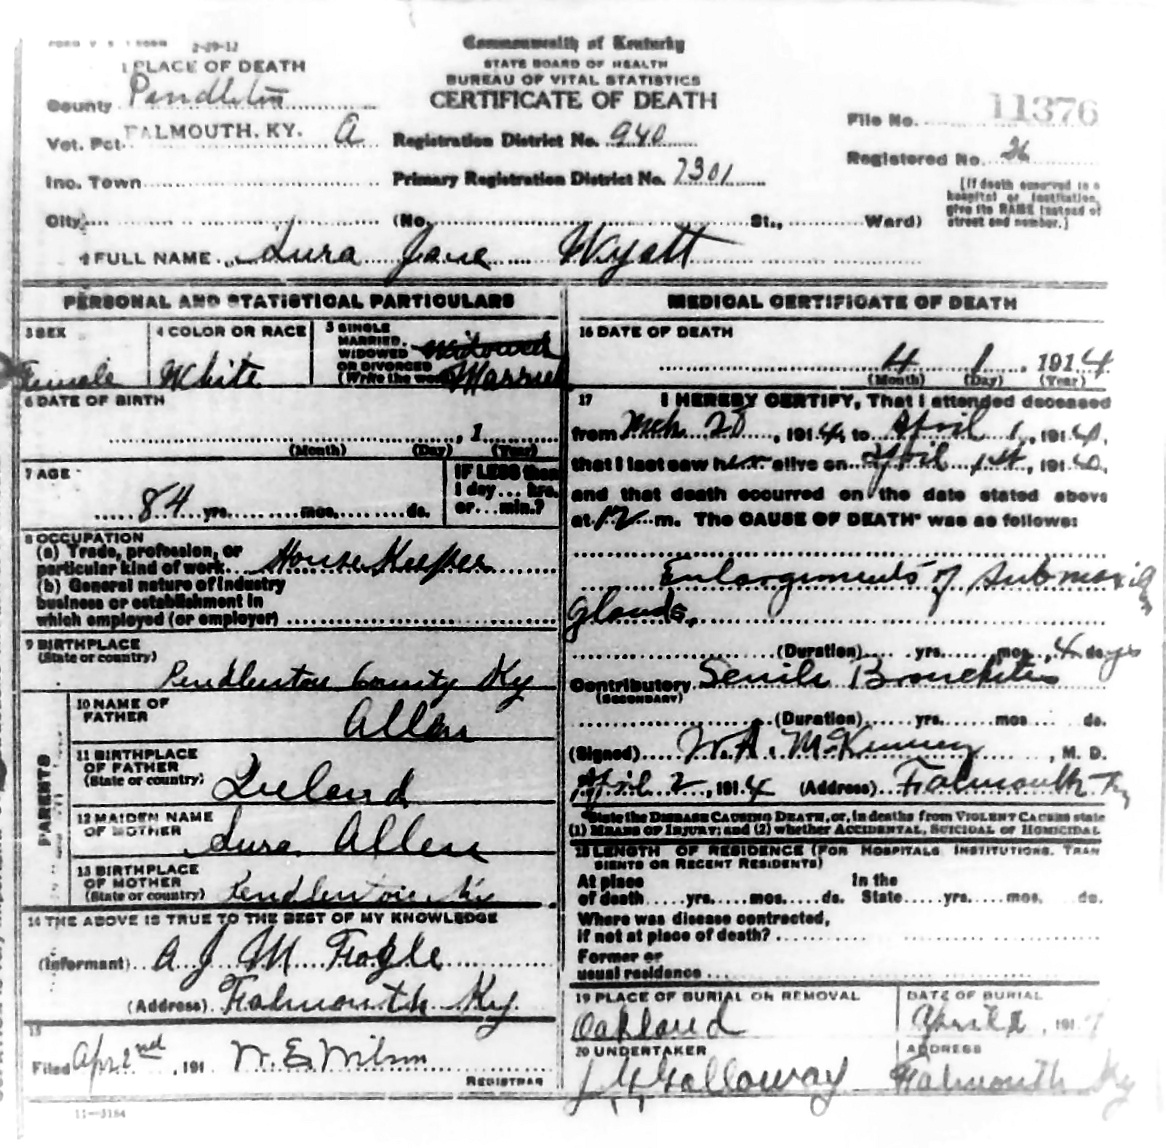 2-29-12
Commonwealth of Kentucky
STATE BOARD OF HEALTH
BUREAU OF VITAL STATISTICS
CERTIFICATE OF DEATH
1 PLACE OF DEATH
County Pendleton
Vot. Pct. FALMOUTH, KY. A
Registration District No. 940
File No. 11376
Inc. Town
Primary Registration District No. 7301
Registered No. 26
[If death occurred in a hospital or institution, give its NAME instead of street and number.]
City (No. St., Ward)
2 FULL NAME Lura Jane Wyatt
PERSONAL AND STATISTICAL PARTICULARS
3 SEX
Female
4 COLOR OR RACE
White
5 SINGLE
MARRIED,
WIDOWED
OR DIVORCED
(Write the word)
Widowed
Married
6 DATE OF BIRTH
, 1
(Month) (Day) (Year)
7 AGE
84 yrs. mos. ds.
IF LESS than
1 day... hrs.
or... min.?
8 OCCUPATION
(a) Trade, profession, or
particular kind of work House Keeper
(b) General nature of industry
business or establishment in
which employed (or employer)
9 BIRTHPLACE
(State or country)
Pendlenton County Ky
PARENTS
10 NAME OF
FATHER
Allen
11 BIRTHPLACE
OF FATHER
(State or country)
Ireland
12 MAIDEN NAME
OF MOTHER
Lura Allen
13 BIRTHPLACE
OF MOTHER
(State or country)
Ky
14 THE ABOVE IS TRUE TO THE BEST OF MY KNOWLEDGE
(Informant) A J M Fogle
(Address) Falmouth Ky
15
Filed Apr 2nd, 191 W. E. Wilson
REGISTRAR
11-3184
MEDICAL CERTIFICATE OF DEATH
16 DATE OF DEATH
4 1, 1914
(Month) (Day) (Year)
17 I HEREBY CERTIFY, That I attended deceased
from Mch 28, 1914, to April 1, 1914,
that I last saw her alive on April 1st, 1914,
and that death occurred on the date stated above
at 12 m. The CAUSE OF DEATH* was as follows:
Enlargements of Submaxila
Glands.
(Duration) yrs. mos. 4 days
Contributory Senile Bronchitis
(SECONDARY)
(Duration) yrs. mos ds.
(Signed) W. A. McKinney, M. D.
April 2, 1914 (Address) Falmouth Ky
*State the DISEASE CAUSING DEATH, or, in deaths from VIOLENT CAUSES state
(1) MEANS OF INJURY; and (2) whether ACCIDENTAL, SUICIDAL or HOMICIDAL
18 LENGTH OF RESIDENCE (FOR HOSPITALS INSTITUTIONS, TRAN
SIENTS OR RECENT RESIDENTS)
At place In the
of death yrs. mos. ds. State yrs. mos. ds.
Where was disease contracted,
if not at place of death?
Former or
usual residence
19 PLACE OF BURIAL OR REMOVAL
Oakland
DATE OF BURIAL
April 2, 191
20 UNDERTAKER
Galloway
ADDRESS
Falmouth Ky